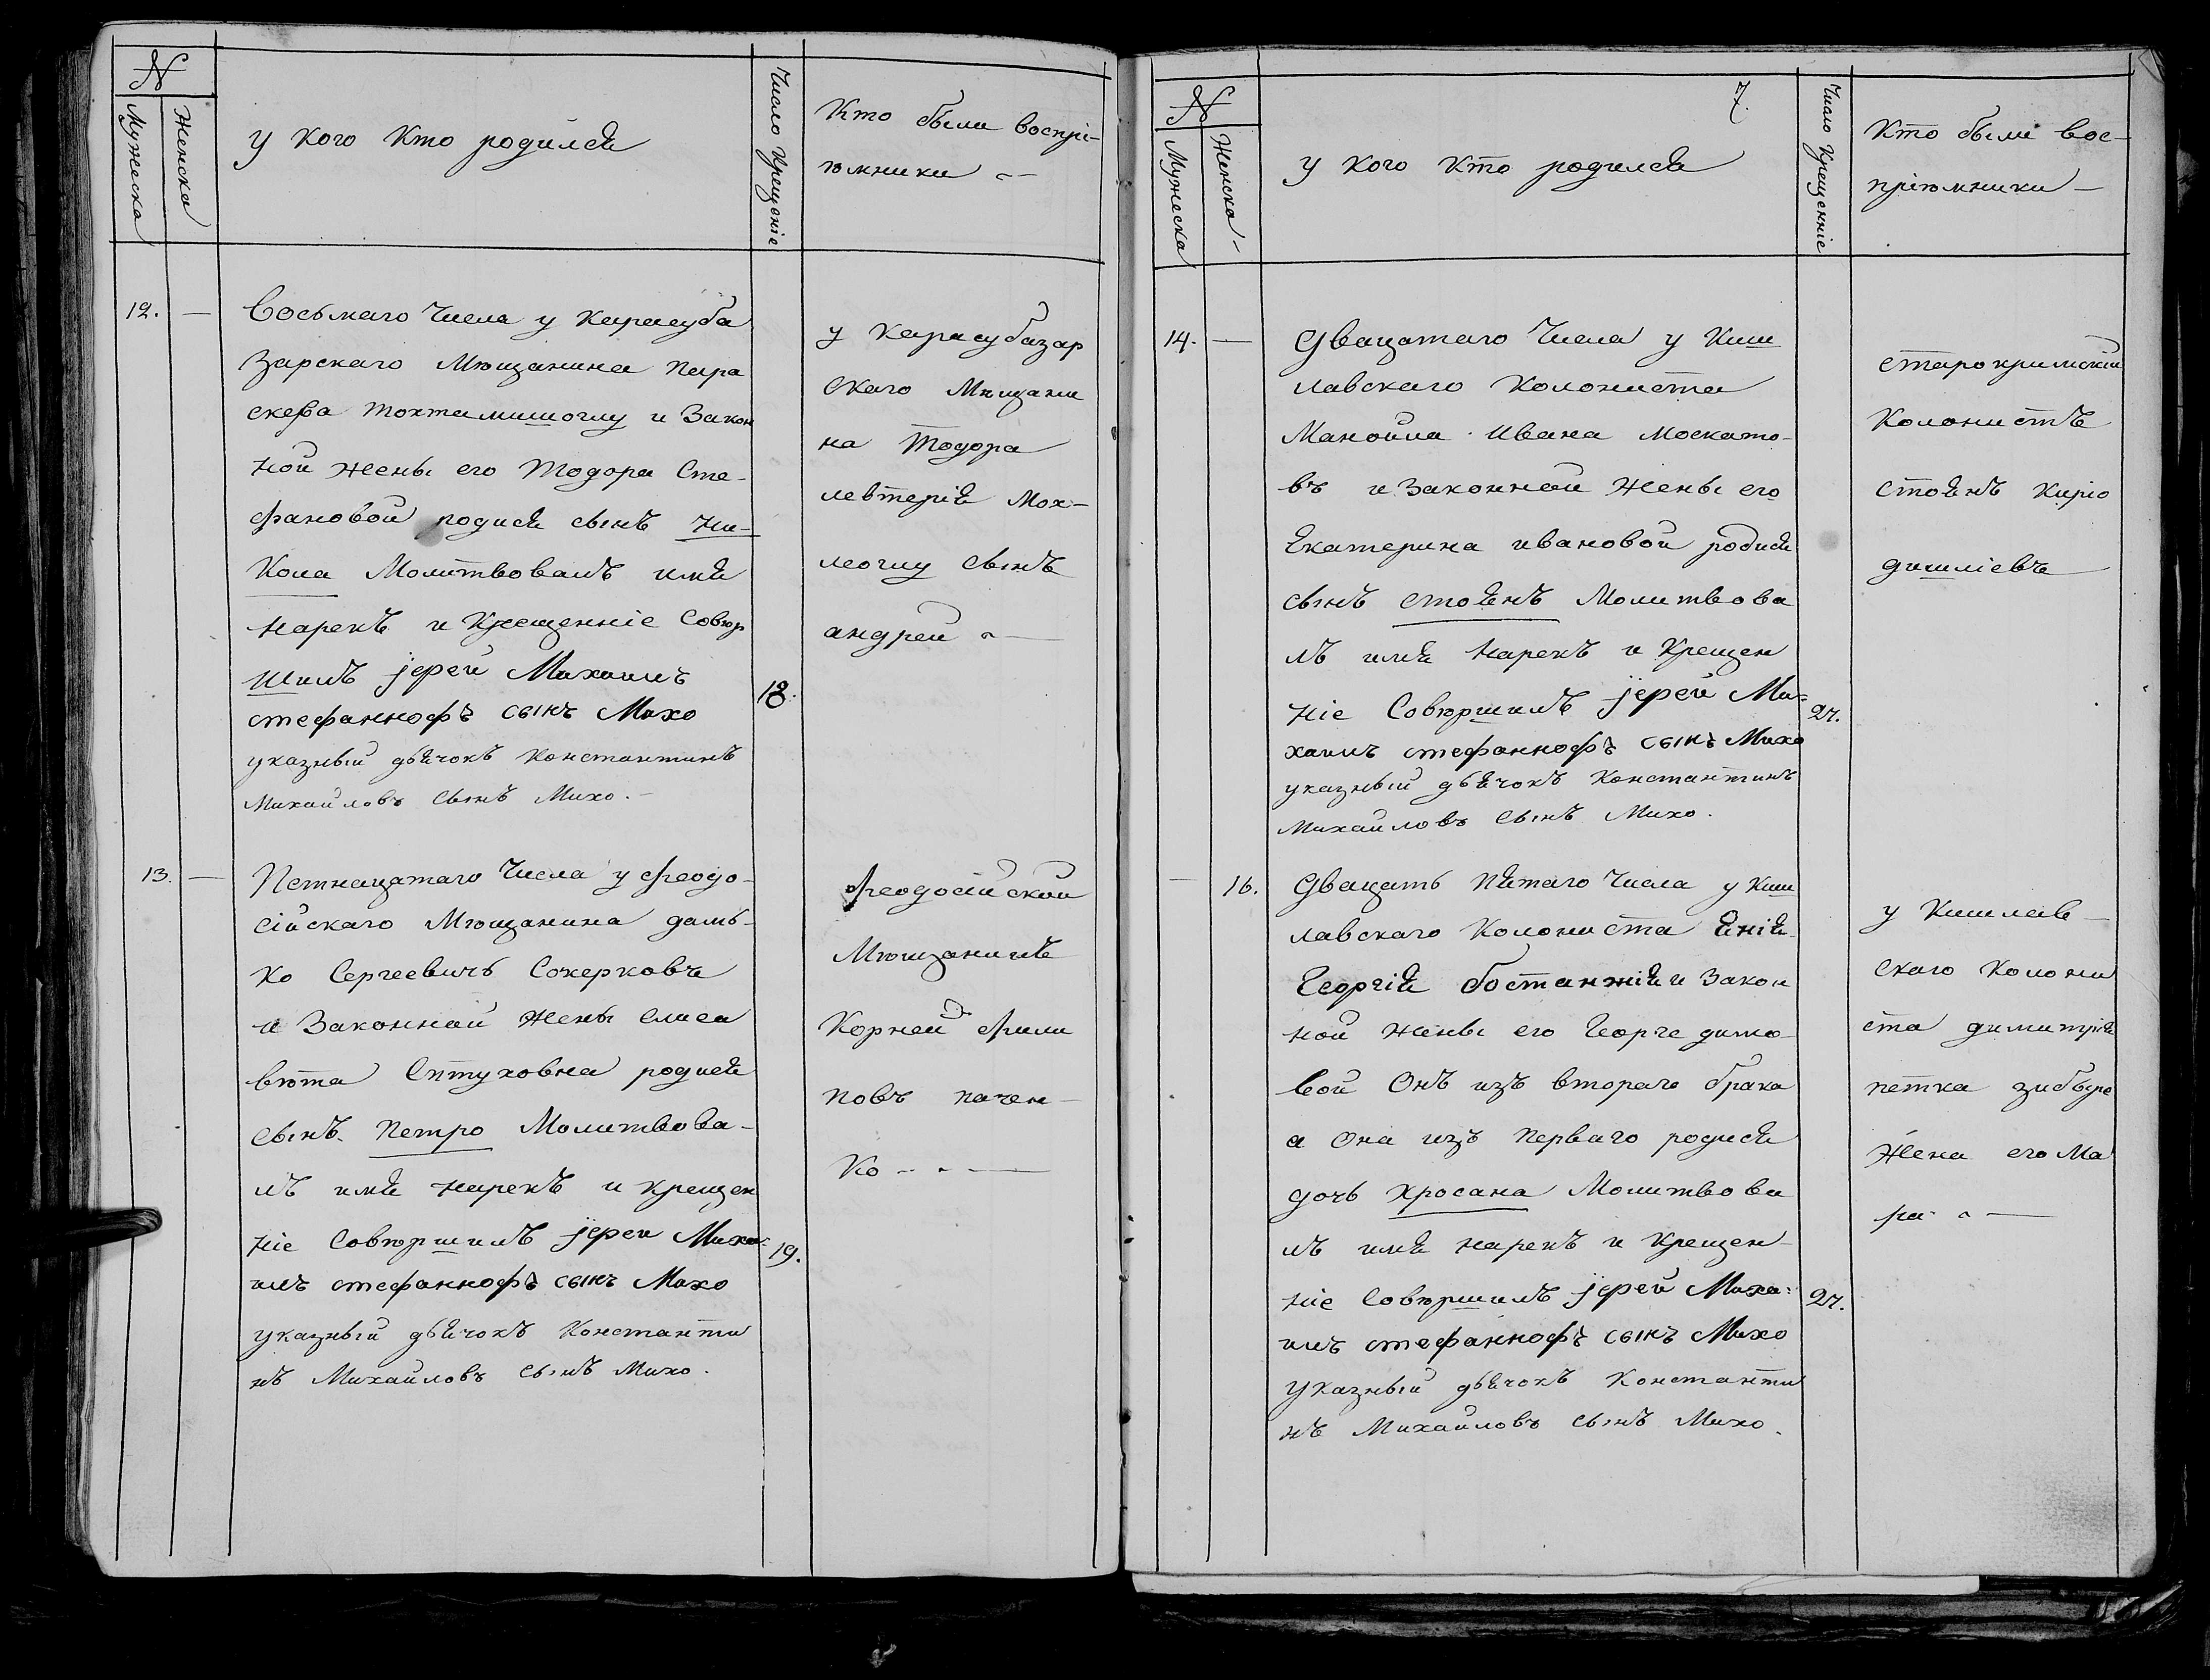 N
Мужеска
Женска
у кого кто родился
Число Крещение
Кто были воспрі-
юмники
12. —
Восьмаго Числа у Карасуба
зарскаго Мющанина Пара
скева тохтамишоглу и Закон
ной жены его Тодора Сте-
фановой родися сынъ Ни-
кола Молитвовалъ имя
нарекъ и Крещенніе Совюр
шилъ јерей Михаилъ
стефаннофъ сынъ Михо
указный дьячокъ Константинъ
Михайловъ Сынъ Михо.-
18.
у Карасубазар
скаго Мищани
на Тодора
левтерія Мох-
леоглу Сынъ
андреи
13. —
Петнацатаго Числа у феодо-
сійскаго Мющанина дамь-
ко Сергеевичъ Сокерковъ
и Законной Жены елиса
вюта Єптуховна родися
сынъ Петро Молитвова-
лъ имя нарекъ и крещен
ніе Совюршилъ јереи Миха-
илъ стефаннофъ сынъ Михо
указный дьячокъ Константи
нъ Михайловъ Сынъ Михо.
19.
феодосійской
Мющанинъ
Корней фили
повъ пачен-
ко
7.
N
Мужеска
Женска -
у кого кто родился
Число Крещенніе
Кто были вос-
пріюмники -
14. —
Двацатаго Числа у Киш
лавскаго Колониста
Манойла Ивана Москато-
въ и Законной Жены его
Екатерина ивановой родися
сынъ стоянъ Молитвова
лъ имя нарекъ и Крещен
ніе Совюршилъ јерей Ми-
хаилъ стефаннофъ сынъ Михо
указный дьячокъ Константинъ
Михайловъ Сынъ Михо.
27.
старокримскій
Колонистъ
стоянъ Кирю
дишліевъ
— 16.
Двацать пятаго Числа у Киш
лавскаго Колониста Янія
Георгія бостанжія и Закон
ной жены его Георге димо-
вой Онъ изъ втораго брака
а Она изъ Перваго родися
дочь Хросана Молитвова
лъ имя нарекъ и Крещен-
ніе Совюршилъ јерей Миха-
илъ стефаннофъ сынъ Михо
указный дьячокъ Константи
нъ Михайловъ Сынъ Михо.
27.
у Кишлав-
скаго Колони
ста димитрія
петка
Жена его Ма
ра